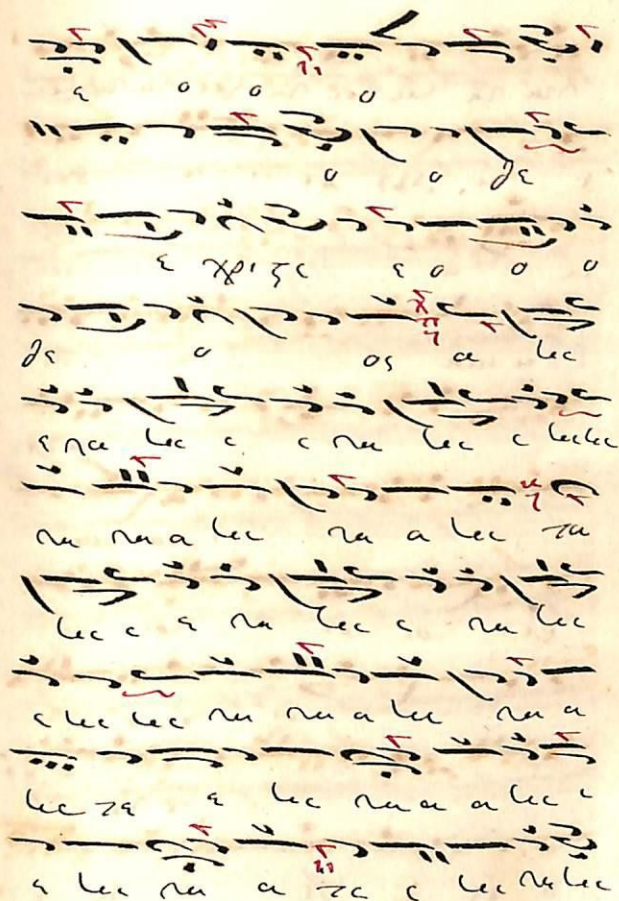 ε ο ο ο
ο ο δε
ε χρι ζε ε ο ο ο
δε ο ος α νε
ε να νε ε ε να νε ε νενε
να να α νε να α νε τα
νε ε ε να νε ε να νε
ε νε νε να να α νε να α
νε τε ε νε να α α νε ε
ε νε να α τε ε νε να νε